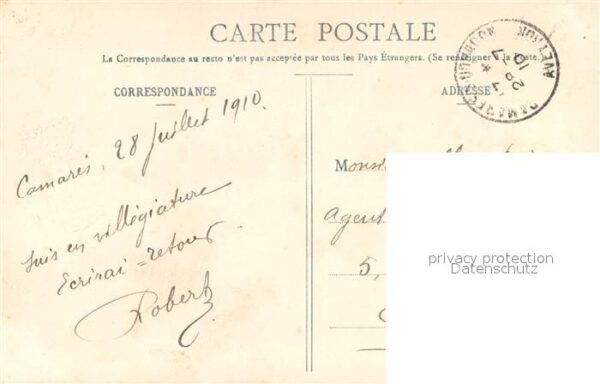 CARTE POSTALE
La Correspondance au recto n'est pas acceptée par tous les Pays Étrangers. (Se renseigner à la Poste.)
CORRESPONDANCE
ADRESSE
AVEYRON
Camarès, 28 Juillet 1910.
suis en villégiature
Ecrirai = retour
Robert
Monsie
Agent
5,
privacy protection
Datenschutz